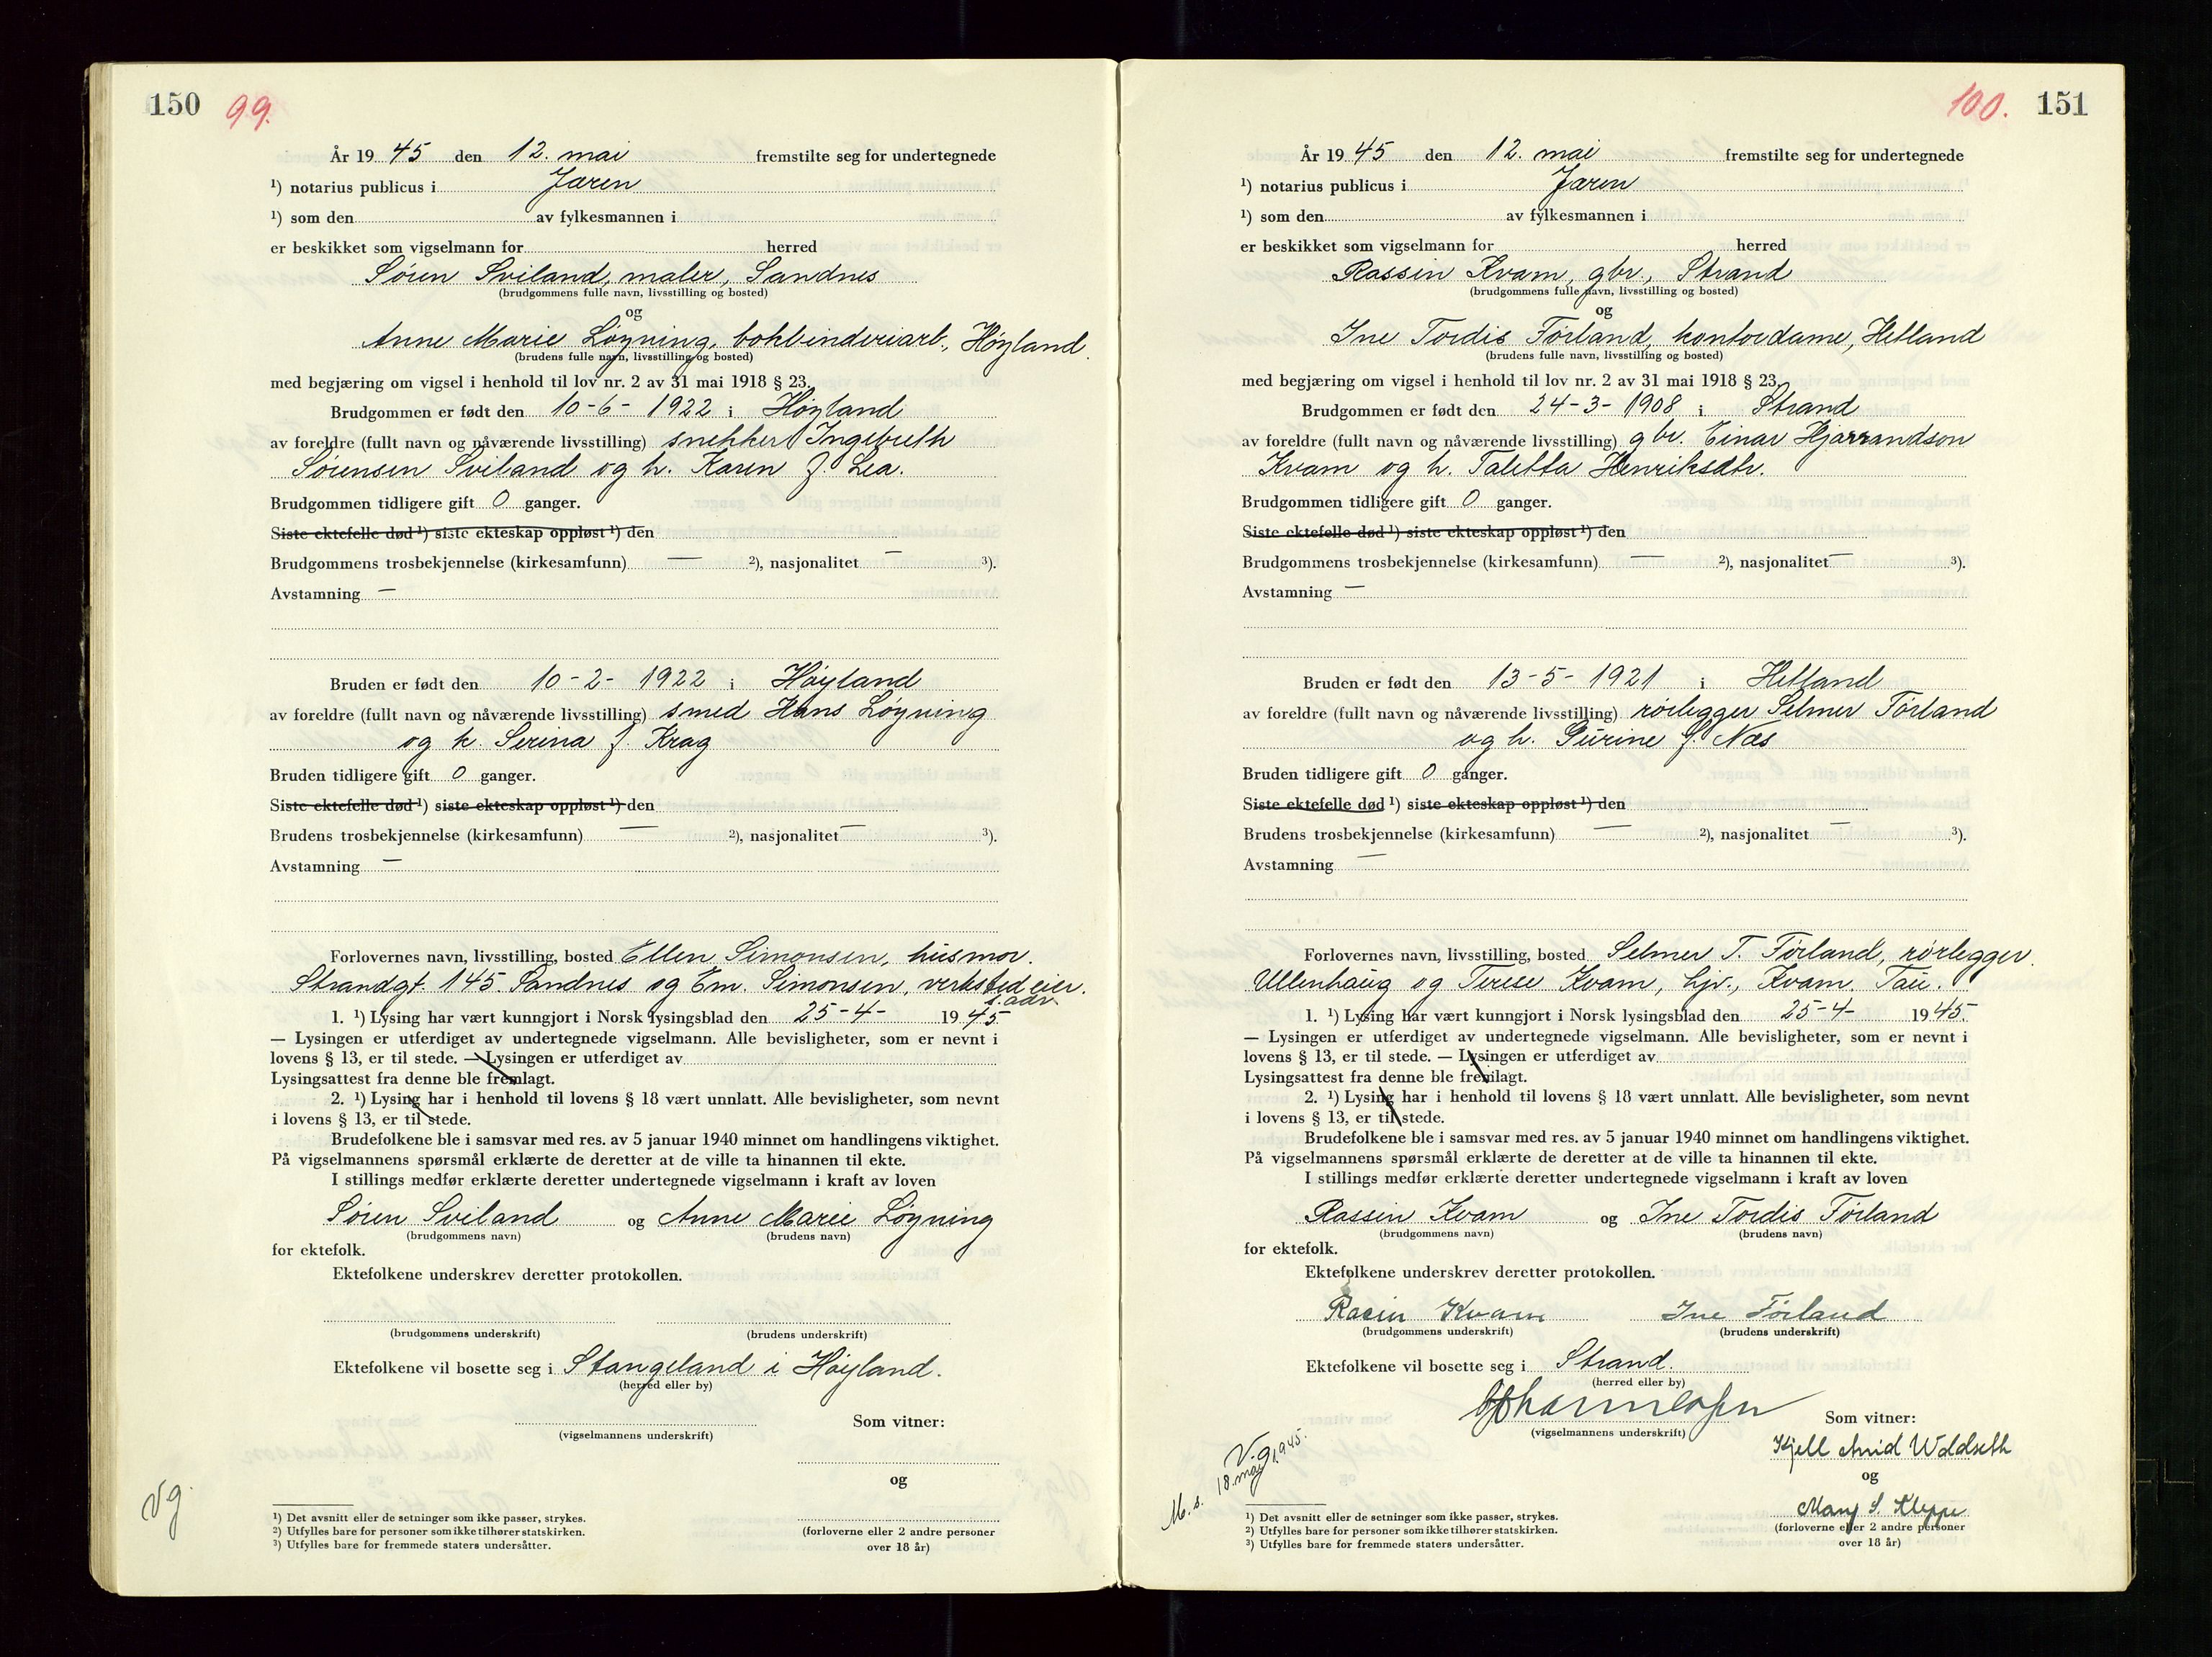 150 99.
År 1945 den 12. mai fremstilte seg for undertegnede
¹) notarius publicus i Jæren
¹) som den av fylkesmannen i
er beskikket som vigselmann for herred
Søren Sviland, maler, Sandnes
(brudgommens fulle navn, livsstilling og bosted)
og
Anne Marie Løyning, bokbinderiarb., Høyland.
(brudens fulle navn, livsstilling og bosted)
med begjæring om vigsel i henhold til lov nr. 2 av 31 mai 1918 § 23.
Brudgommen er født den 10-6- 1922 i Høyland
av foreldre (fullt navn og nåværende livsstilling) snekker Ingebreth
Sørensen Sviland og h. Karen f. Lea.
Brudgommen tidligere gift 0 ganger.
Siste ektefelle død ¹) siste ekteskap oppløst ¹) den
Brudgommens trosbekjennelse (kirkesamfunn) — ²), nasjonalitet — ³).
Avstamning —
Bruden er født den 10-2- 1922 i Høyland
av foreldre (fullt navn og nåværende livsstilling) smed Hans Løyning
og h. Serina f. Krag
Bruden tidligere gift 0 ganger.
Siste ektefelle død ¹) siste ekteskap oppløst ¹) den
Brudens trosbekjennelse (kirkesamfunn) — ²), nasjonalitet — ³).
Avstamning —
Forlovernes navn, livsstilling, bosted Ellen Simonsen, husmor.
Strandgt. 145. Sandnes og Em. Simonsen, verksted eier.
s. adr.
1. ¹) Lysing har vært kunngjort i Norsk lysingsblad den 25-4- 1945.
— Lysingen er utferdiget av undertegnede vigselmann. Alle bevisligheter, som er nevnt i
lovens § 13, er til stede. — Lysingen er utferdiget av
Lysingsattest fra denne ble fremlagt.
2. ¹) Lysing har i henhold til lovens § 18 vært unnlatt. Alle bevisligheter, som nevnt
i lovens § 13, er til stede.
Brudefolkene ble i samsvar med res. av 5 januar 1940 minnet om handlingens viktighet.
På vigselmannens spørsmål erklærte de deretter at de ville ta hinannen til ekte.
I stillings medfør erklærte deretter undertegnede vigselmann i kraft av loven
Søren Sviland og Anne Marie Løyning
(brudgommens navn) (brudens navn)
for ektefolk.
Ektefolkene underskrev deretter protokollen.
(brudgommens underskrift) (brudens underskrift)
Ektefolkene vil bosette seg i Stangeland i Høyland.
(herred eller by)
Som vitner:
(vigselmannens underskrift)
og
Vg.
¹) Det avsnitt eller de setninger som ikke passer, strykes.
²) Utfylles bare for personer som ikke tilhører statskirken.
³) Utfylles bare for fremmede staters undersåtter.
(forloverne eller 2 andre personer
over 18 år)
100. 151
År 1945 den 12. mai fremstilte seg for undertegnede
¹) notarius publicus i Jæren
¹) som den av fylkesmannen i
er beskikket som vigselmann for herred
Rassin Kvam, gbr., Strand
(brudgommens fulle navn, livsstilling og bosted)
og
Ine Tordis Førland, kontordame, Hetland
(brudens fulle navn, livsstilling og bosted)
med begjæring om vigsel i henhold til lov nr. 2 av 31 mai 1918 § 23.
Brudgommen er født den 24-3- 1908 i Strand
av foreldre (fullt navn og nåværende livsstilling) gbr. Einar Hjarrandson
Kvam og h. Taletta Henriksdtr.
Brudgommen tidligere gift 0 ganger.
Siste ektefelle død ¹) siste ekteskap oppløst ¹) den
Brudgommens trosbekjennelse (kirkesamfunn) — ²), nasjonalitet — ³).
Avstamning —
Bruden er født den 13-5- 1921 i Hetland
av foreldre (fullt navn og nåværende livsstilling) rørlegger Selmer Førland
og h. Gurine f. Næs
Bruden tidligere gift 0 ganger.
Siste ektefelle død ¹) siste ekteskap oppløst ¹) den
Brudens trosbekjennelse (kirkesamfunn) — ²), nasjonalitet — ³).
Avstamning —
Forlovernes navn, livsstilling, bosted Selmer T. Førland, rørlegger.
Ullenhaug og Terese Kvam, hjv., Kvam. Tau.
1. ¹) Lysing har vært kunngjort i Norsk lysingsblad den 25-4- 1945.
— Lysingen er utferdiget av undertegnede vigselmann. Alle bevisligheter, som er nevnt i
lovens § 13, er til stede. — Lysingen er utferdiget av
Lysingsattest fra denne ble fremlagt.
2. ¹) Lysing har i henhold til lovens § 18 vært unnlatt. Alle bevisligheter, som nevnt
i lovens § 13, er til stede.
Brudefolkene ble i samsvar med res. av 5 januar 1940 minnet om handlingens viktighet.
På vigselmannens spørsmål erklærte de deretter at de ville ta hinannen til ekte.
I stillings medfør erklærte deretter undertegnede vigselmann i kraft av loven
Rassin Kvam og Ine Tordis Førland
(brudgommens navn) (brudens navn)
for ektefolk.
Ektefolkene underskrev deretter protokollen.
Rasin Kvam Ine Førland
(brudgommens underskrift) (brudens underskrift)
Ektefolkene vil bosette seg i Strand.
(herred eller by)
Som vitner:
(vigselmannens underskrift)
Kjell Arvid
og
Mary S. Kleppe
Vg.
M. s. 18. mai 1945.
¹) Det avsnitt eller de setninger som ikke passer, strykes.
²) Utfylles bare for personer som ikke tilhører statskirken.
³) Utfylles bare for fremmede staters undersåtter.
(forloverne eller 2 andre personer
over 18 år)